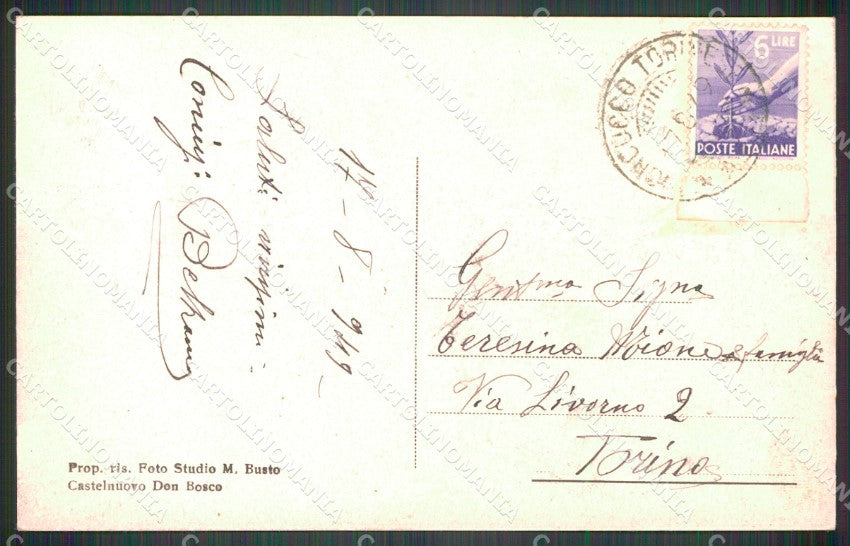 17-8-949-
Saluti vivissimi
Coniugi Beltramo
Gentma Sigra
Teresina Moione e famiglia
Via Livorno 2
Torino
6 LIRE
POSTE ITALIANE
TORINESE
Prop. ris. Foto Studio M. Busto
Castelnuovo Don Bosco
CARTOLINOMANIA